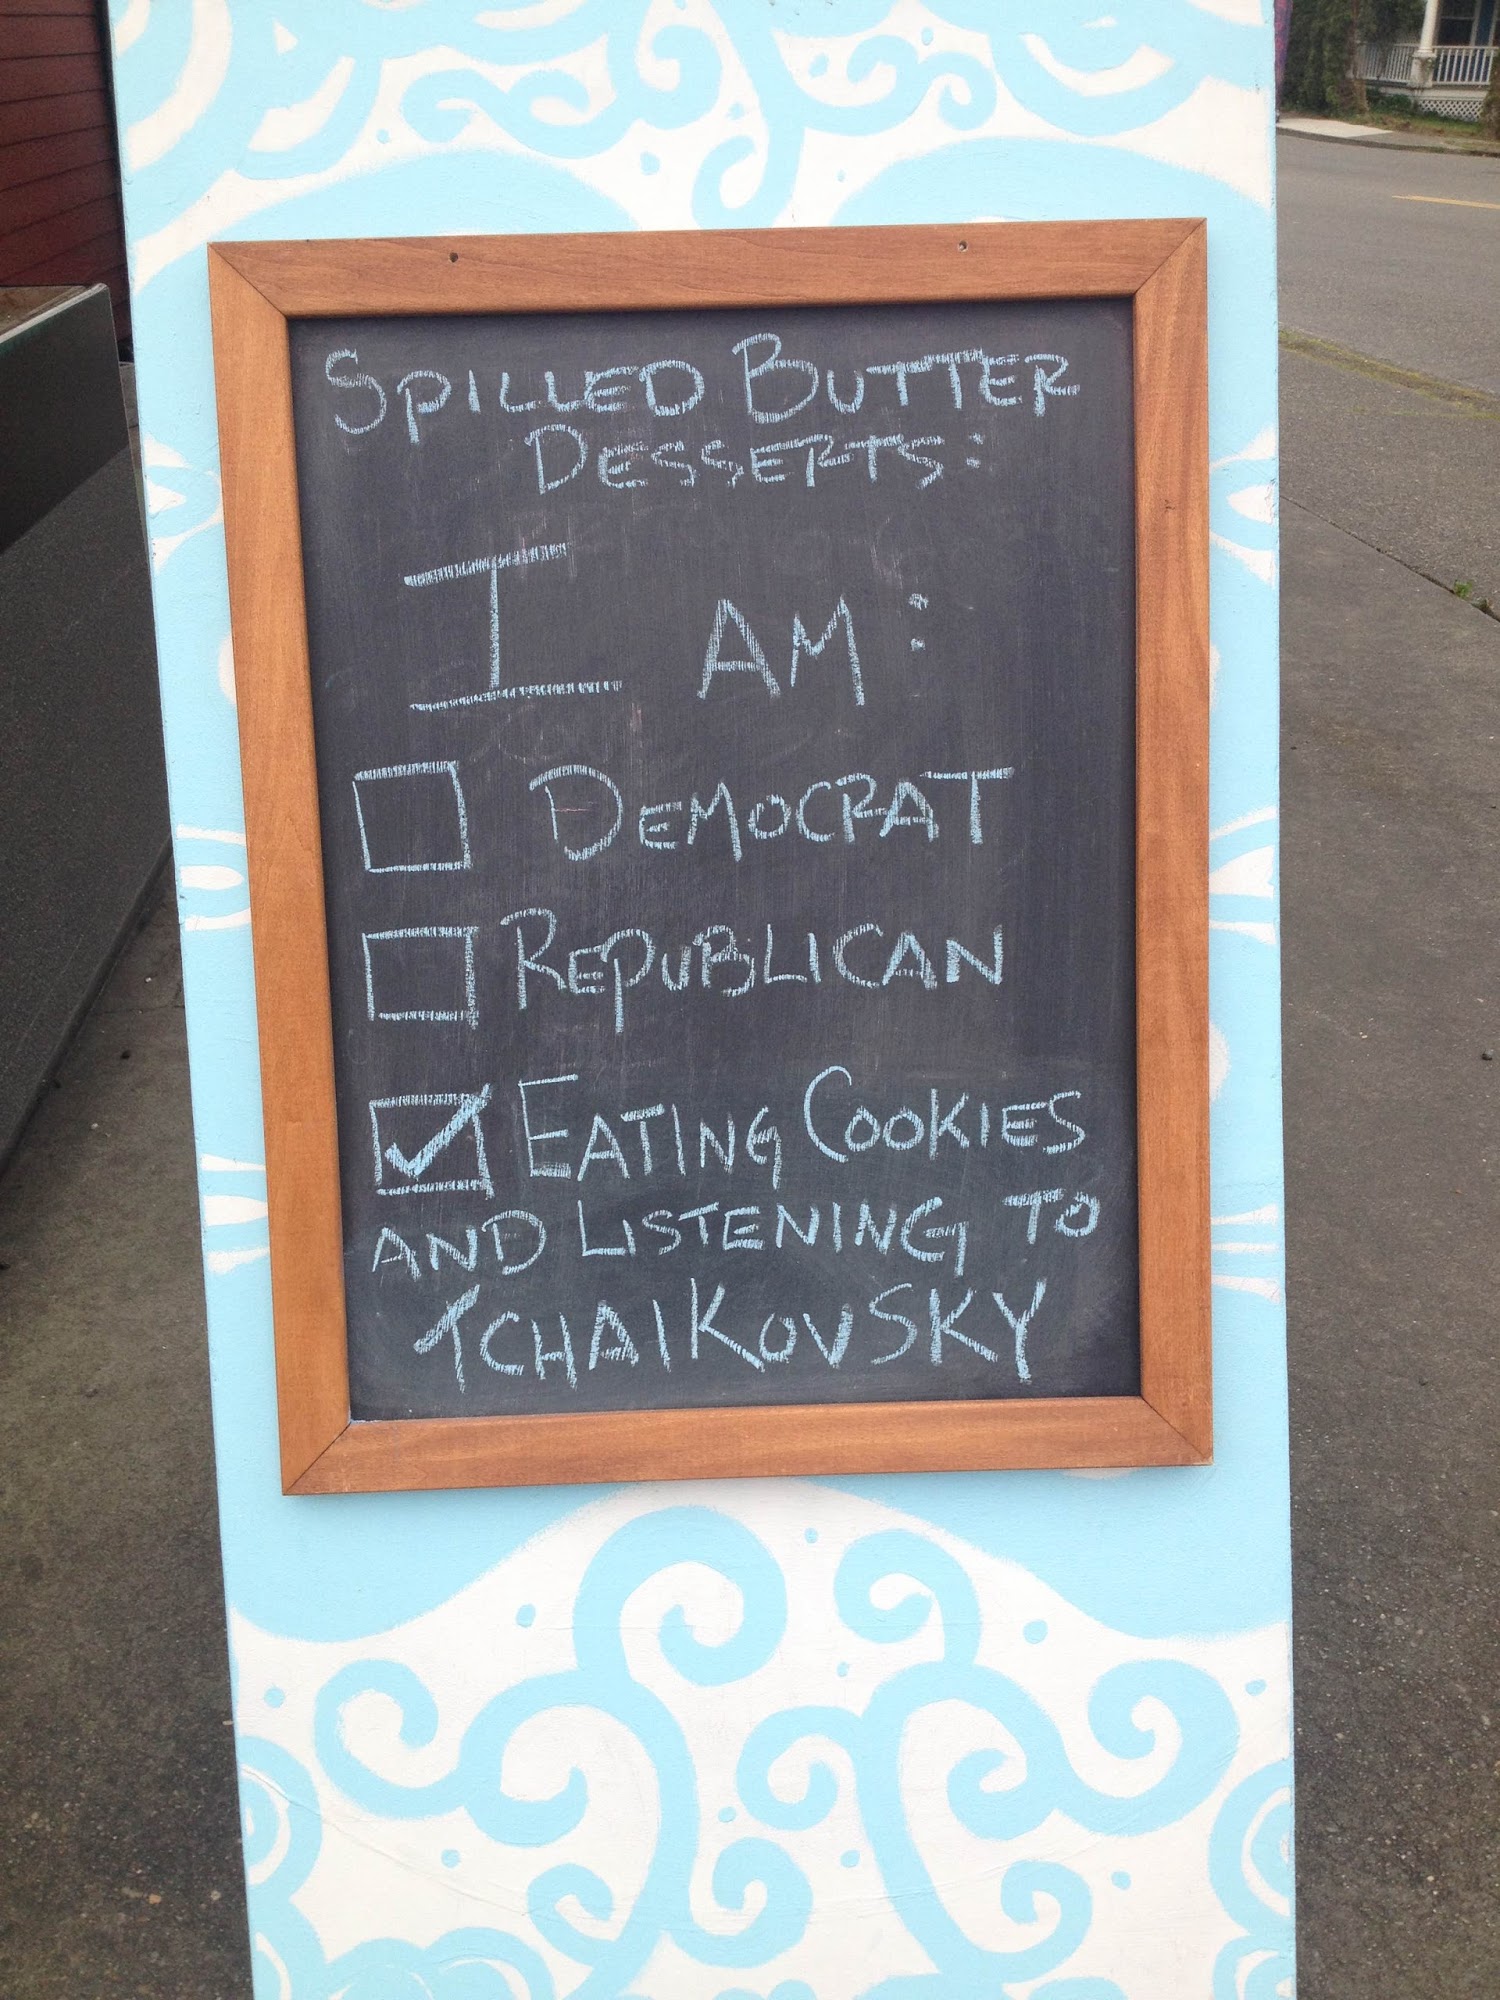 SPILLED BUTTER
DESSERTS:
I AM:
DEMOCRAT
REPUBLICAN
EATING COOKIES
AND LISTENING TO
TCHAIKOVSKY